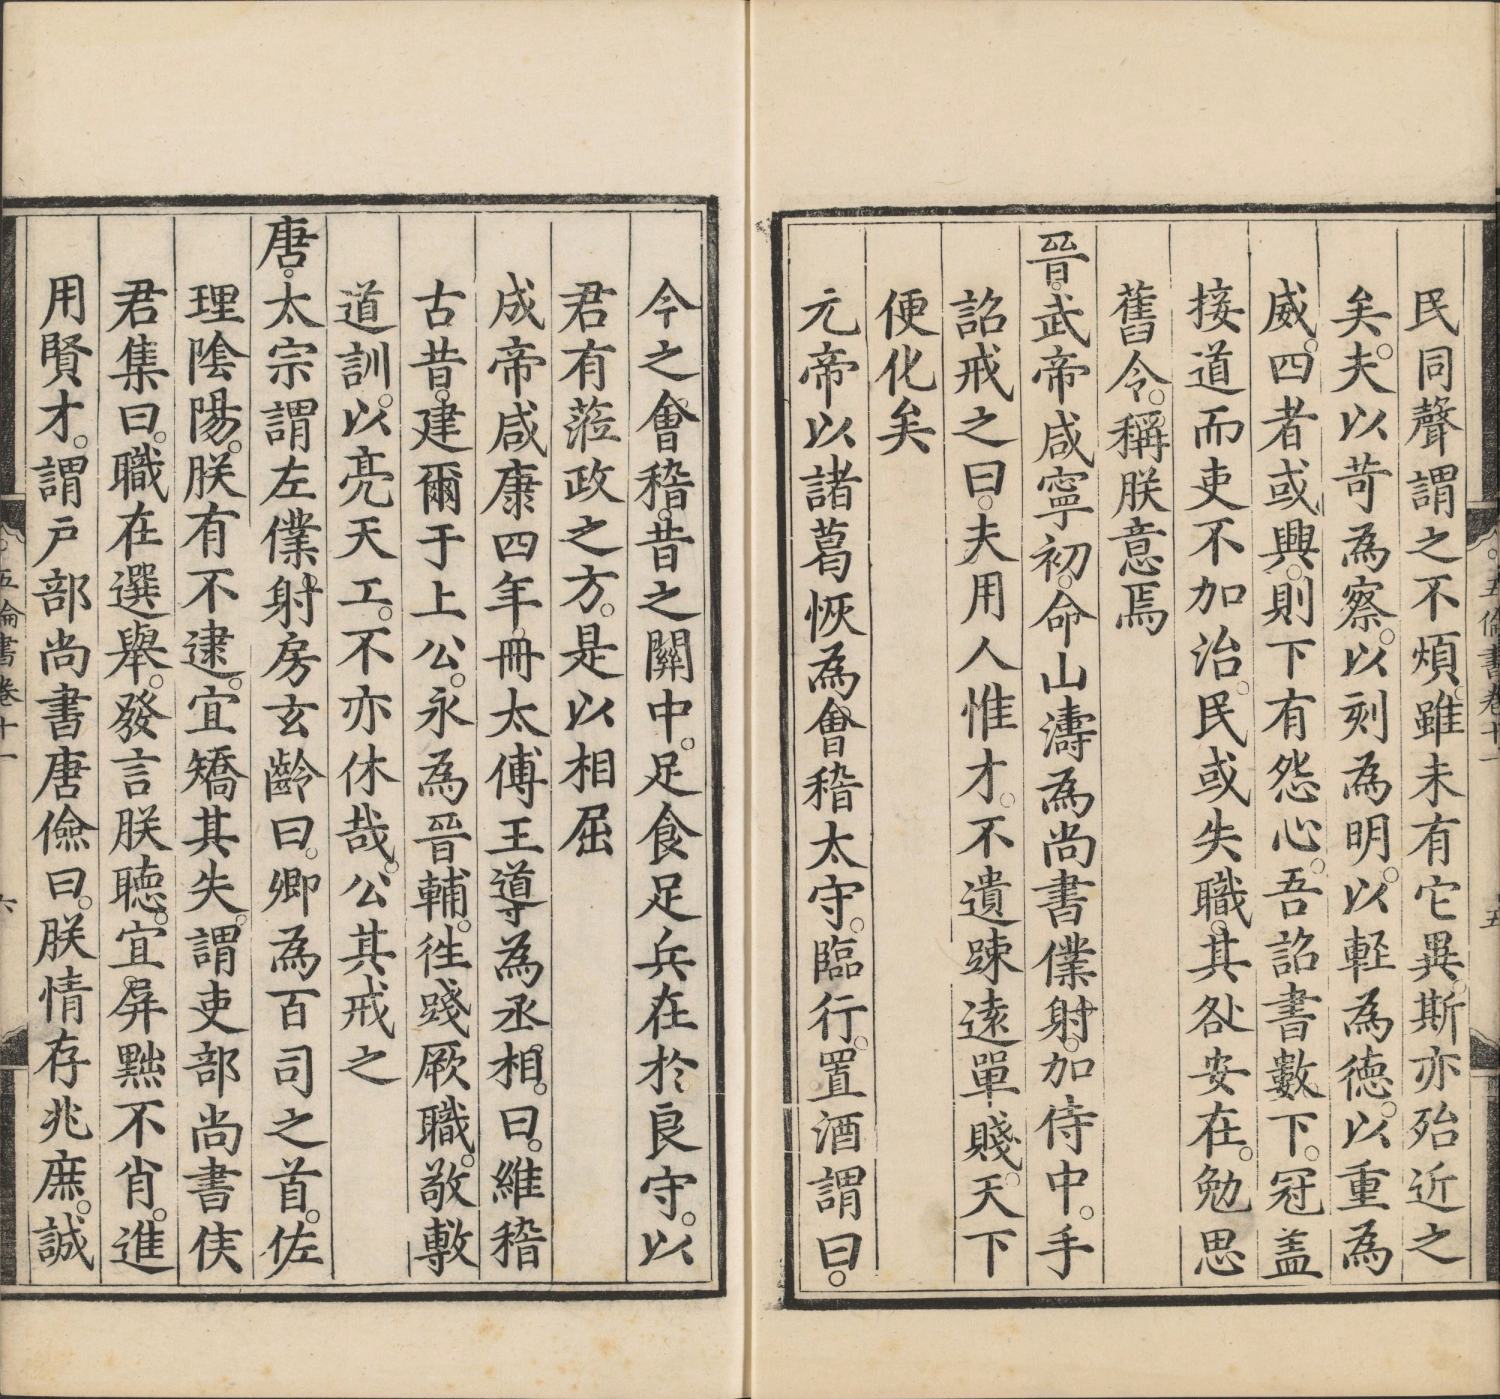 民同聲謂之不煩。雖未有它異。斯亦殆近之
矣。夫以苛為察。以刻為明。以輕為德。以重為
威。四者或興。則下有怨心。吾詔書數下。冠盖
接道而吏不加治。民或失職。其咎安在。勉思
舊令。稱朕意焉
晉。武帝咸寧初。命山濤為尚書僕射。加侍中。手
詔戒之曰。夫用人惟才。不遺踈遠單賤。天下
便化矣
元帝以諸葛恢為會稽太守。臨行。置酒謂曰。
今之會稽。昔之關中。足食足兵在於良守。以
君有蒞政之方。是以相屈
成帝咸康四年。冊太傅王導為丞相。曰。維稽
古昔。建爾于上公。永為晉輔。徃踐厥職。敬敷
道訓。以亮天工。不亦休哉。公其戒之
唐。太宗謂左僕射房玄齡曰。卿為百司之首。佐
理陰陽。朕有不逮。宜矯其失。謂吏部尚書侯
君集曰。職在選舉。發言朕聴。宜屏黜不肖。進
用賢才。謂戶部尚書唐儉曰。朕情存兆庶。誠
五倫書卷十一
五
五倫書卷十一
六